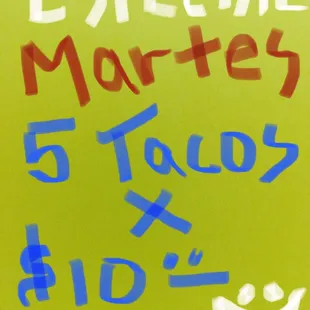 Martes
5 Tacos
x
$10